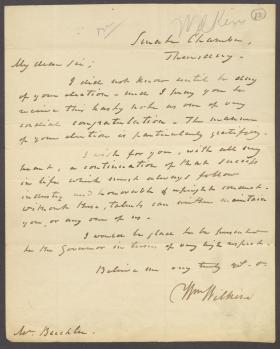 Senate Chamber,
Thursday.
My dear Sir;
I did not know until to day
of your election - and I pray you to
receive this hasty note as one of very
cordial congratulation - The manner
of your election is particularly gratifying.
I wish for you, with all my
heart, a continuation of that success
in life which must always follow
industry and honorable & upright conduct.
Without these, talents can neither maintain
you, or any of us.
I would be glad to be presented
to the Governor in terms of very high respect.
Believe me very truly yr.
Wm Wilkins
Mr